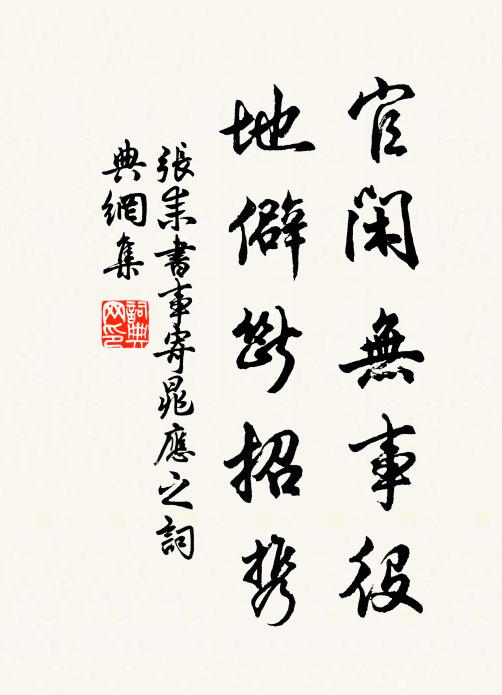 官閑無事役
地僻斷招攜
張耒書事寄晁應之詞
典網集
詞典
网印